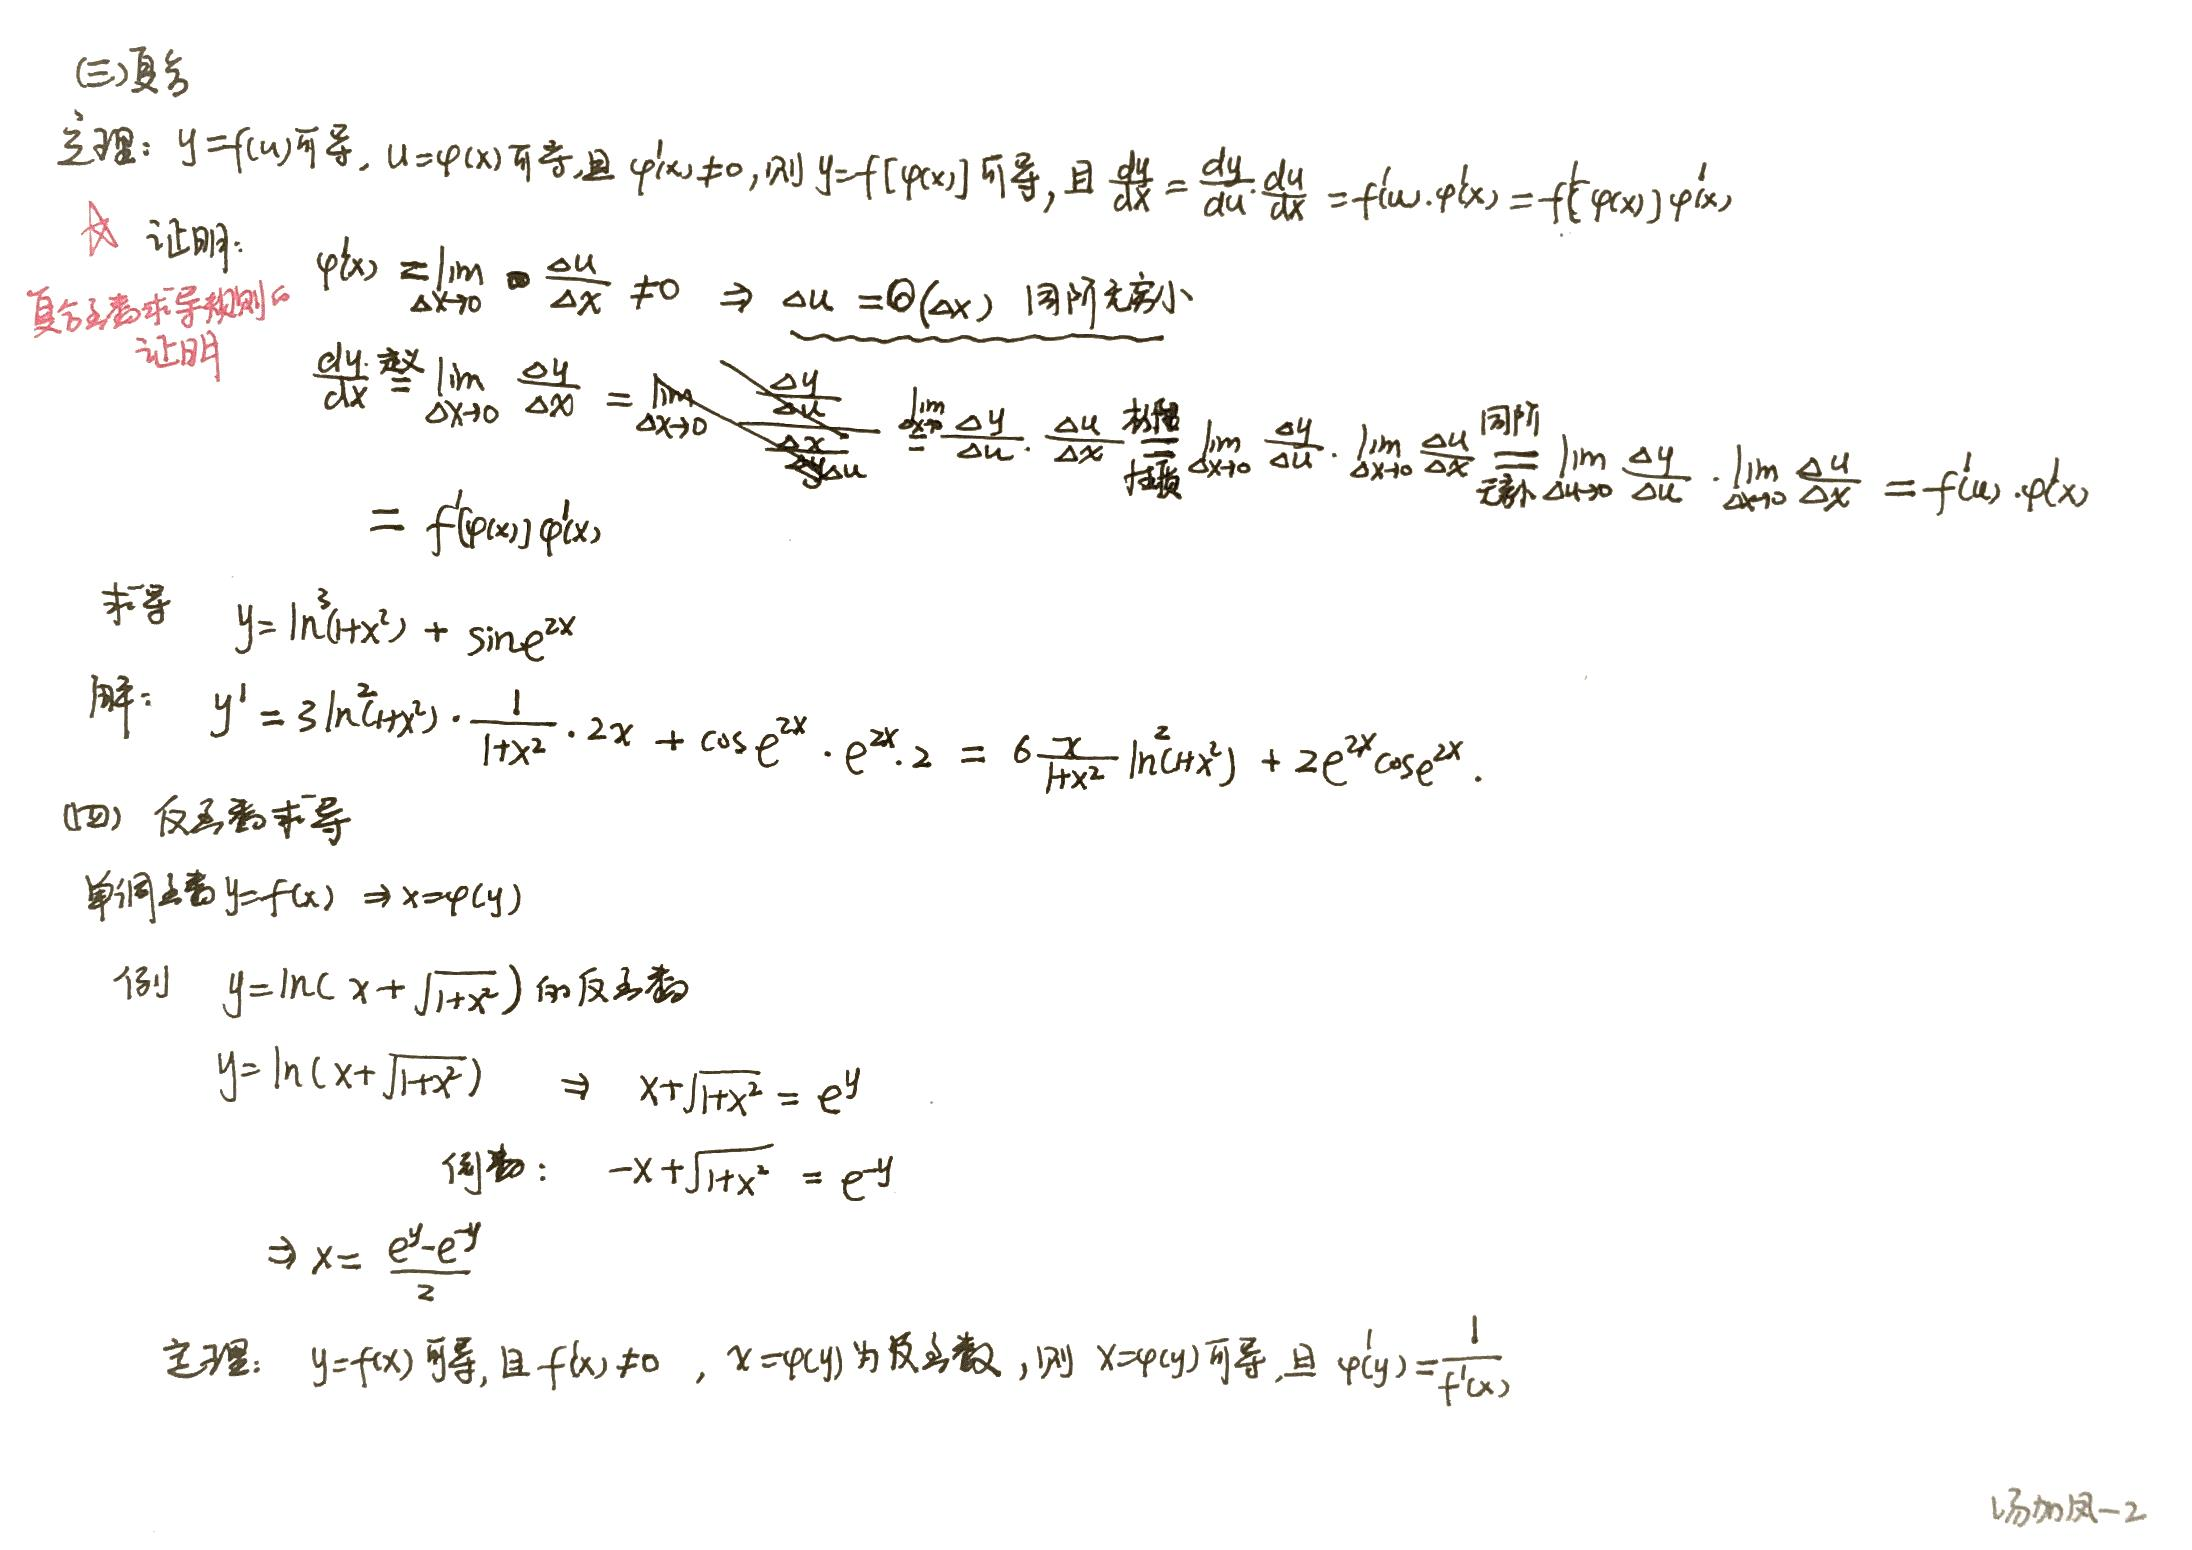 (三)复合
定理：y=f(u)可导，u=φ(x)可导，且φ'(x)≠0，则y=f[φ(x)]可导，且 dy/dx = dy/du · du/dx = f'(u)·φ'(x) = f'[φ(x)]φ'(x)
☆ 证明：
复合函数求导规则的
证明
φ'(x) = lim_{Δx→0} Δu/Δx ≠0 ⇒ Δu = O(Δx) 同阶无穷小
dy/dx 定义= lim_{Δx→0} Δy/Δx = lim_{Δx→0} Δy/Δu · Δu/Δx 极限= lim_{Δx→0} Δy/Δu · lim_{Δx→0} Δu/Δx 同阶无穷小= lim_{Δu→0} Δy/Δu · lim_{Δx→0} Δu/Δx = f'(u)·φ'(x)
= f'[φ(x)]φ'(x)
求导 y=ln³(1+x²) + sin e^{2x}
解： y' = 3ln²(1+x²) · 1/(1+x²) · 2x + cos e^{2x} · e^{2x} · 2 = 6 x/(1+x²) ln²(1+x²) + 2e^{2x} cos e^{2x}.
(四) 反函数求导
单调函数y=f(x) ⇒ x=φ(y)
例 y=ln(x+√(1+x²))的反函数
y=ln(x+√(1+x²)) ⇒ x+√(1+x²) = e^y
倒数： -x+√(1+x²) = e^{-y}
⇒ x= (e^y-e^{-y})/2
定理： y=f(x)可导，且f'(x)≠0，x=φ(y)为反函数，则 x=φ(y)可导，且 φ'(y)=1/f'(x)
汤加凤-2